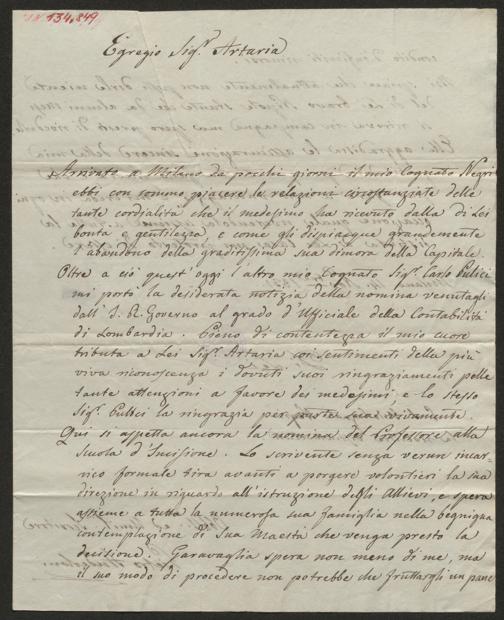 IN 134.849
Egregio Sigr. Artaria
Arrivato a Milano da pochi giorni il mio Cognato Negri
ebbi con sommo piacere le relazioni circostanziate delle
tante cordialità che il medesimo ha ricevuto dalla di Lei
bontà e gentilezza, e come gli dispiacque gravemente
l'abandono della graditissima sua dimora della Capitale.
Oltre a ciò quest'oggi l'altro mio Cognato Sigr. Carlo
mi portò la desiderata notizia della nomina venutagli
dall'I. R. Governo al grado d'Ufficiale della Contabilità
di Lombardia. Pieno di contentezza il mio cuore
tributa a Lei Sigr. Artaria coi sentimenti della più
viva riconoscenza i dovuti suoi ringraziamenti pelle
tante attenzioni a favore dei medesimi, e lo stesso
Sigr. la ringrazia per parte sua vivamente.
Qui si aspetta ancora la nomina del Professore alla
Scuola d'Incisione. Lo scrivente senza verun incar-
rico formale tira avanti a porgere volontieri la sua
direzione in riguardo all'istruzione degli Allievi, e spera
assieme a tutta la numerosa sua famiglia nella begnigna
contemplazione di Sua Maestà che venga presto la
decisione. Garavaglia spera non meno di me, ma
il suo modo di procedere non potrebbe che fruttargli un pane